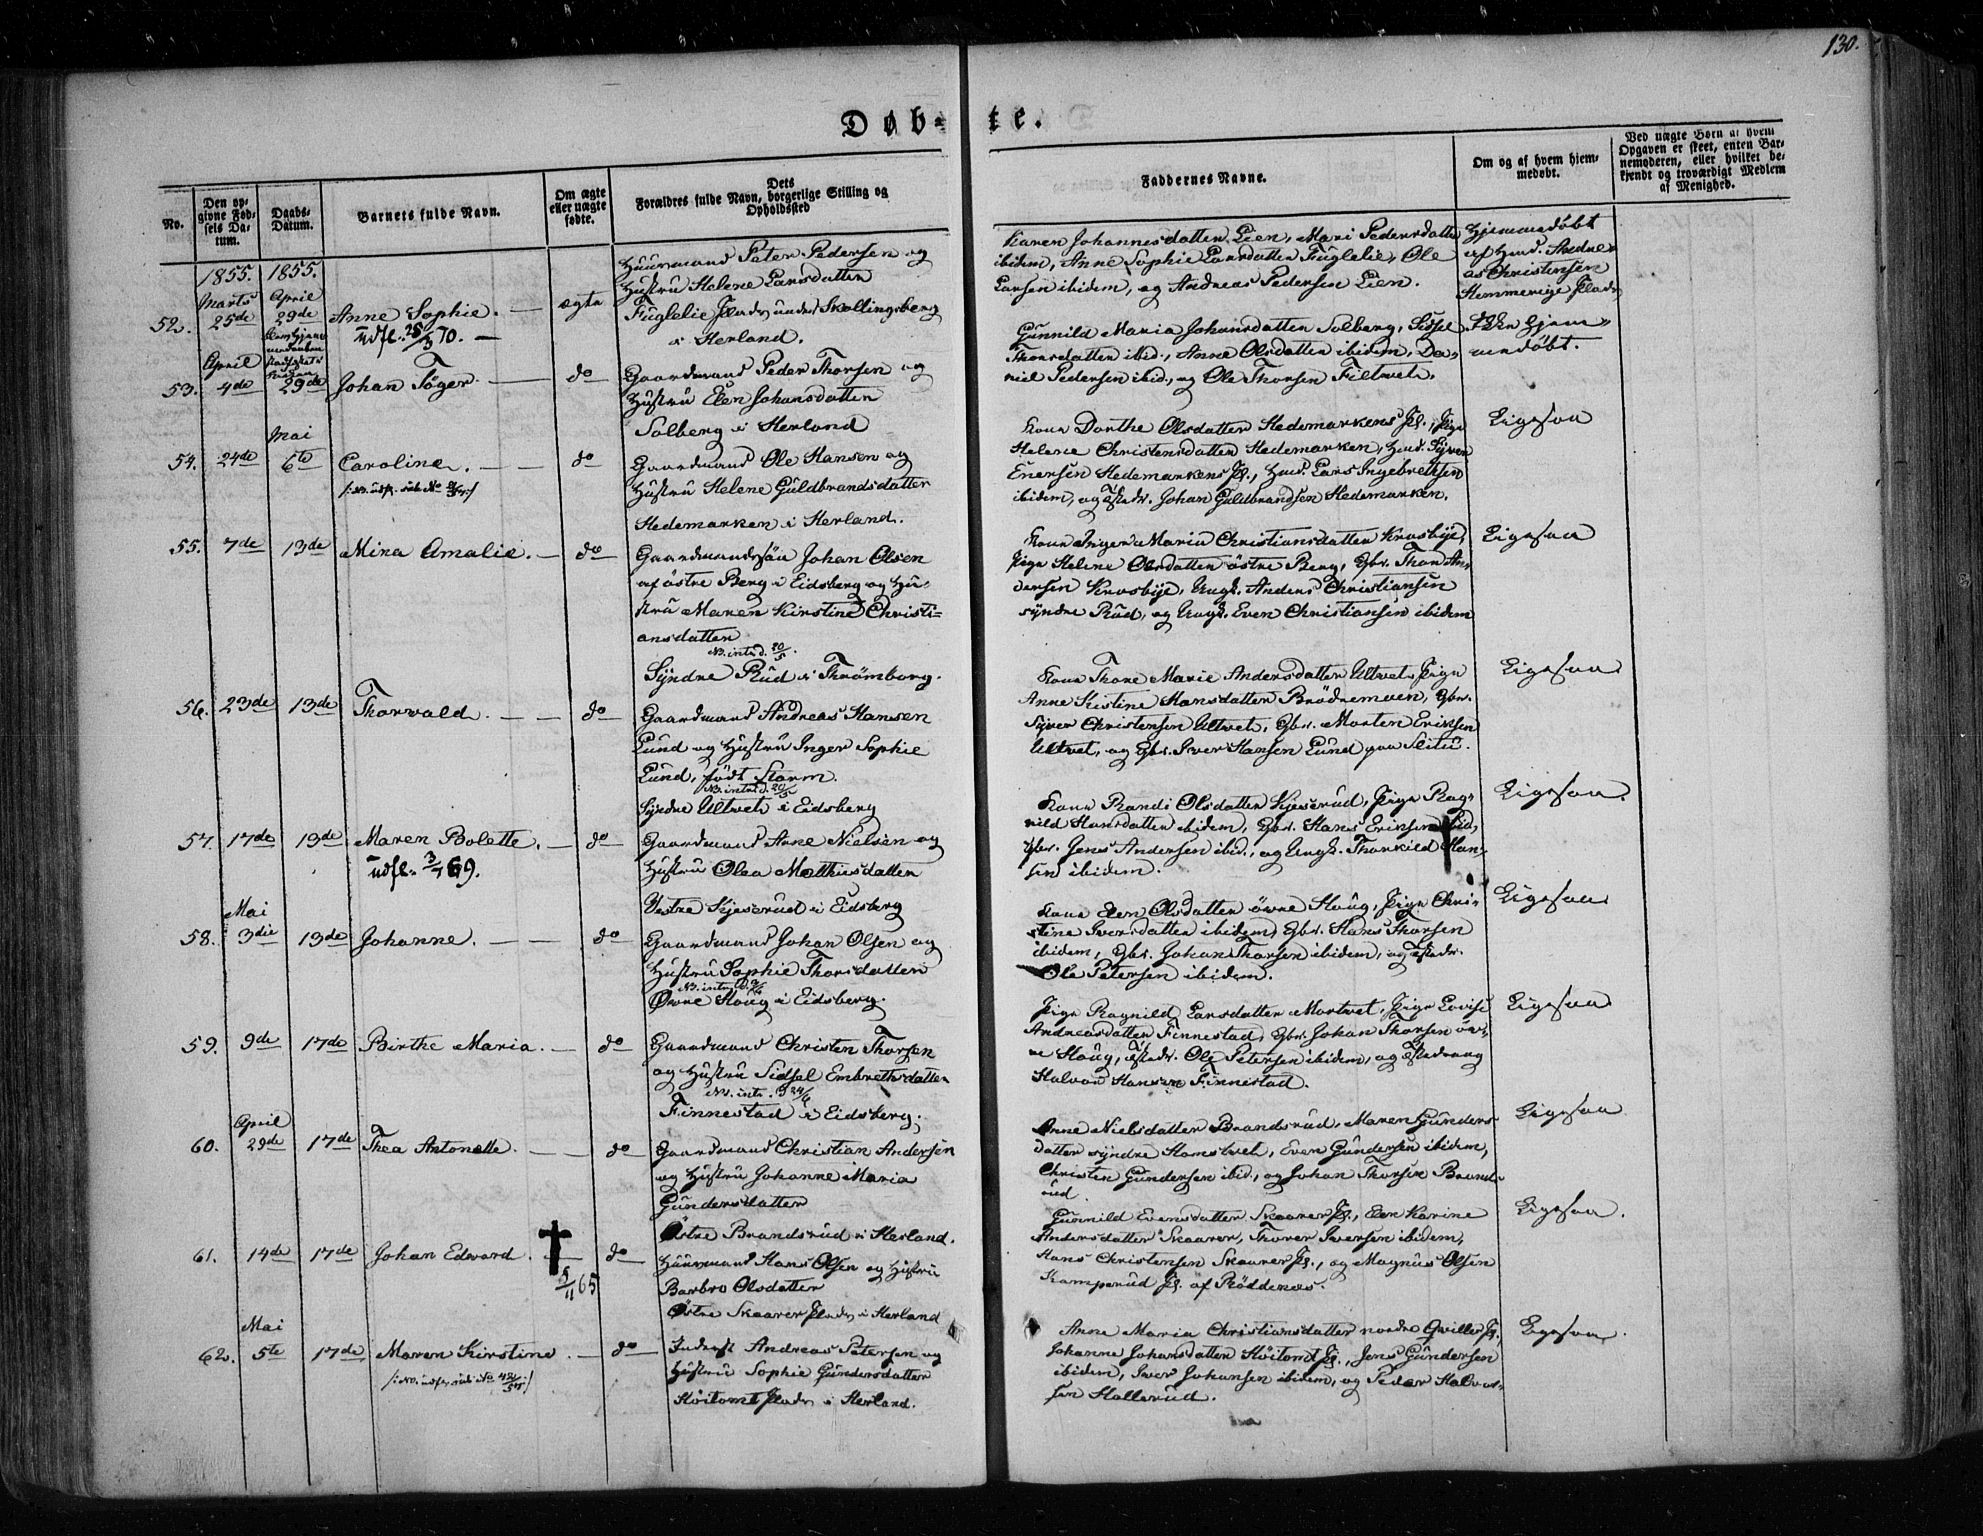 130.
Døb-
te.
No.
Den op-
givne Fød-
sels Da-
tum.
Daabs-
Datum.
Barnets fulde Navn.
Om ægte
eller uægte
fødte.
Dets
Forældres fulde Navn, borgerlige Stilling og
Opholdssted
Faddernes Navne.
Om og af hvem hjem-
medøbt.
Ved uægte Børn af hvem
Opgaven er skeet, enten Bar-
nemoderen, eller hvilket be-
kjendt og troværdigt Medlem
af Menighed.
1855. 1855.
52. Marts 25de April 29de Anne Sophie. — ægte
udfl. 25/3 70. —
Huusmand Peter Pedersen og
Hustru Helene Larsdatter
Fuglelie Plads under Skallingsberg
i Herland.
Karen Johannesdatter Lien, Mari Pedersdatter
ibidem, Anne Sophie Larsdatter Fuglelie, Ole
Larsen ibidem, og Andreas Pedersen Lien.
Hjemmedøbt
af Huusmd. Andre-
as Christensen
Hemmereie Plads
53. April 4de 29de Johan Töger. — do
Gaardmand Peder Thorsen og
Hustru Elen Johansdatter
Solberg i Herland
Gunnild Maria Johansdatter Solberg, Sidsel
Thorsdatter ibid., Anne Olsdatter ibidem, Da-
niel Pedersen ibid., og Ole Thorsen Filtvet.
Ikke hjem-
medøbt.
54. 24de Mai 6te Caroline. — — do
Gaardmand Ole Hansen og
Hustru Helene Guldbrandsdatter
Hedemarken i Herland.
Kone Dorthe Olsdatter Hedemarkens Pl., Pige
Helene Christensdatter Hedemarken, Huusmd. Syver
Enersen Hedemarkens Pl., Huusmd. Lars Ingebretsen
ibidem, og Johan Guldbrandsen Hedemarken.
Ligesaa
55. 7de 13de Mina Amalie. — do
Gaardmandssön Johan Olsen
af östre Berg i Eidsberg og Hu-
stru Maren Kirstine Christi-
ansdatter
NB. introd. 20/5.
Syndre Rud i Thrömborg.
Kone Inger Maria Christiansdatter Krosbye,
Pige Helene Olsdatter östre Berg, Gbr. Thor An-
dersen Krosbye, Ungk. Anders Christiansen
syndre Rud, og Ungk. Even Christiansen ibidem
Ligesaa
56. 23de 13de Thorwald. — — do
Gaardmand Andreas Hansen
Lund og Hustru Inger Sophie
Lund, född Storm.
NB. introd. 20/5
Syndre Ultvet i Eidsberg
Kone Thore Marie Andersdatter Ultvet, Pige
Anne Kistine Hansdatter Brödremoen, Gbr.
Syver Christensen Ultvet, Gbr. Morten Eriksen
Ultvet, og Gbr. Iver Hansen Lund paa Slitu.
Ligesaa
57. 17de 13de Maren Bolette. — do
udfl. 3/7 69.
Gaardmand Arne Nielsen og
Hustru Olea Matthisdatter
Vestre Kjeserud i Eidsberg
Kone Randi Olsdatter Kjeserud, Pige Rag-
nild Hansdatter ibidem, Gbr. Hans Eriksen ibid.,
Gbr. Jens Andersen ibid., og Ungk. Thorkild Han-
sen ibidem.
Ligesaa.
58. Mai 3die 13de Johanne. — — do
Gaardmand Johan Olsen og
Hustru Sophie Thorsdatter
Övre Houg i Eidsberg.
Kone Elen Olsdatter övre Houg, Pige Chri-
stine Iversdatter ibidem, Gbr. Hans Thorsen
ibidem, Gbr. Johan Thorsen ibidem, og
Ole Petersen ibidem.
Ligesaa
59. 9de 17de Birthe Maria. — do
Gaardmand Christen Thorsen
og Hustru Sidsel Embretsdatter
NB. intr. d. 24/6
Finnestad i Eidsberg.
Pige Ragnild Larsdatter Mortvet, Pige Lovise
Andreasdatter Finnestad, Gbr. Johan Thorsen öv-
re Houg, Ole Petersen ibidem, og
Halvor Hansen Finnestad.
Ligesaa
60. April 29de 17de Thea Antonette. — — do
Gaardmand Christian Andersen
og Hustru Johanne Maria
Gundersdatter
Östre Brandsrud i Herland.
Anne Nielsdatter Brandsrud, Maren Gunders-
datter syndre Hamstvet, Even Gundersen ibidem,
Christen Gundersen ibid., og Johan Thorsen Brands-
rud.
Ligesaa
61. 14de 17de Johan Edvard. — do
5/11 65
Huusmand Hans Olsen og Hustru
Barbro Olsdatter
Östre Skaarer Plads i Herland
Gunnild Evensdatter Skaarer Pl., Elen Karine
Andersdatter Skaarer, Thorer Iversen ibidem,
Hans Christensen Skaarer Pl., og Magnus Olsen
Kamperud Pl. af Röddenes.
Ligesaa.
62. Mai 5te 17de Maren Kirstine — do
Inderst Andreas Petersen og
Hustru Sophie Gundersdatter
Höitomt Plads i Herland.
Anne Maria Christiansdatter nordre Qviller Pl.
Johanne Johansdatter Höitomt Pl., Jens Gundersen
ibidem, Iver Johansen ibidem, og Peder Halvor-
sen Hallerud.
Ligesaa.